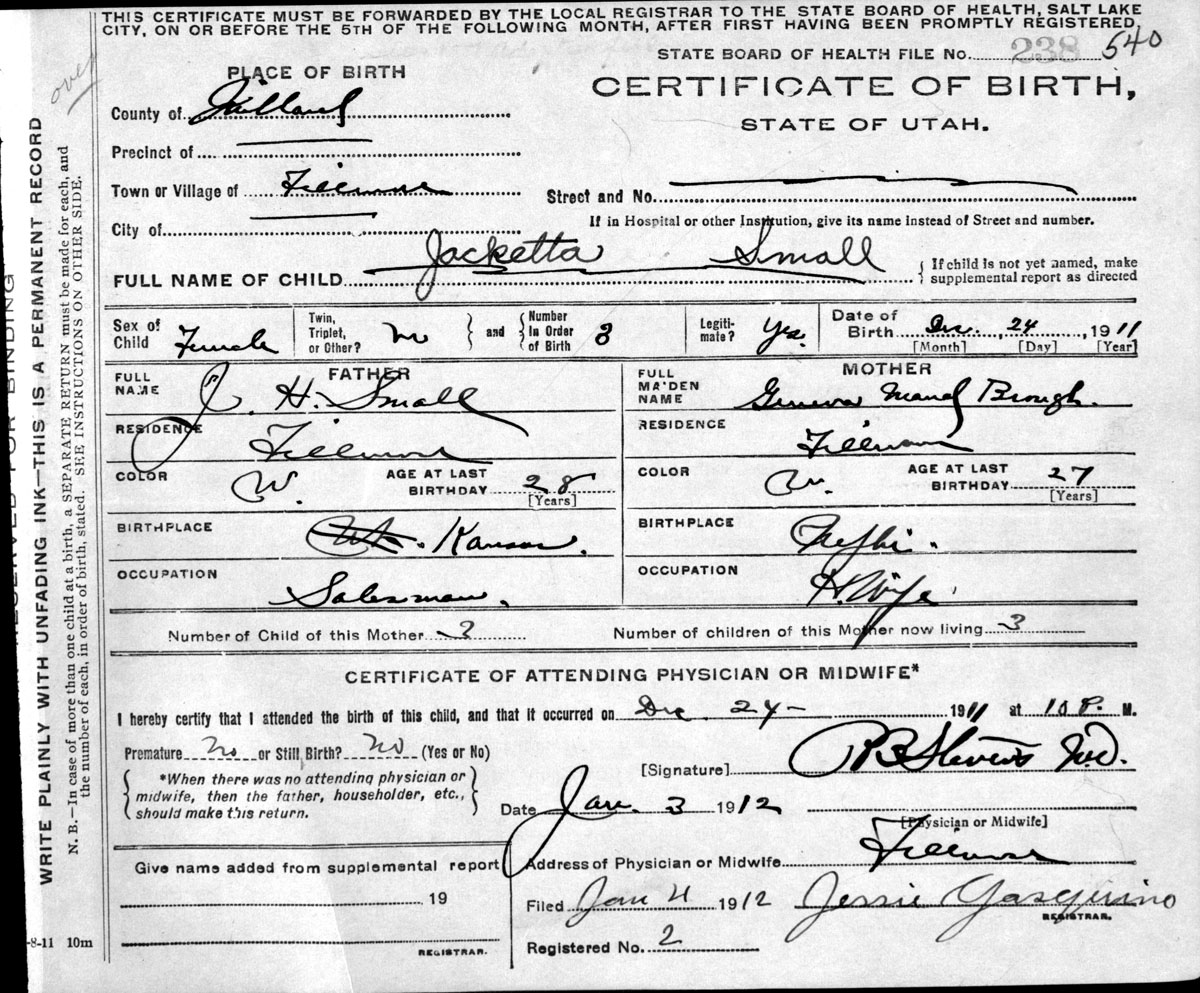 THIS CERTIFICATE MUST BE FORWARDED BY THE LOCAL REGISTRAR TO THE STATE BOARD OF HEALTH, SALT LAKE
CITY, ON OR BEFORE THE 5TH OF THE FOLLOWING MONTH, AFTER FIRST HAVING BEEN PROMPTLY REGISTERED,
STATE BOARD OF HEALTH FILE No. 238 540
over
PLACE OF BIRTH
CERTIFICATE OF BIRTH,
STATE OF UTAH.
County of Millard
Precinct of
Town or Village of Fillmore
Street and No.
If in Hospital or other Institution, give its name instead of Street and number.
City of
FULL NAME OF CHILD Jacketta Small
{ If child is not yet named, make
supplemental report as directed
Sex of Child Female
Twin, Triplet, or Other? no } and { Number In Order of Birth 3
Legiti- mate? Yes.
Date of Birth Dec. 24, 1911
[Month] [Day] [Year]
FATHER
MOTHER
FULL NAME J. H. Small
FULL MAIDEN NAME Geneva Maud Brough.
RESIDENCE Fillmore
RESIDENCE Fillmore
COLOR W. AGE AT LAST BIRTHDAY 28 [Years]
COLOR W. AGE AT LAST BIRTHDAY 27 [Years]
BIRTHPLACE Kansas.
BIRTHPLACE Nephi.
OCCUPATION Salesman.
OCCUPATION H. Wife
Number of Child of this Mother 3
Number of children of this Mother now living 3
CERTIFICATE OF ATTENDING PHYSICIAN OR MIDWIFE*
I hereby certify that I attended the birth of this child, and that it occurred on Dec. 24- 1911 at 10 P. M.
Premature No or Still Birth? No (Yes or No)
[Signature] Stevens MD.
{ *When there was no attending physician or
midwife, then the father, householder, etc.,
should make this return. }
Date Jan. 3 1912
[Physician or Midwife]
Give name added from supplemental report
19
REGISTRAR.
Address of Physician or Midwife Fillmore
Filed Jan 4 1912 Jessie
REGISTRAR.
Registered No. 2
-8-11 10m
RESERVED FOR BINDING
WRITE PLAINLY WITH UNFADING INK—THIS IS A PERMANENT RECORD
N. B.—In case of more than one child at a birth, a SEPARATE RETURN must be made for each, and
the number of each, in order of birth, stated. SEE INSTRUCTIONS ON OTHER SIDE.